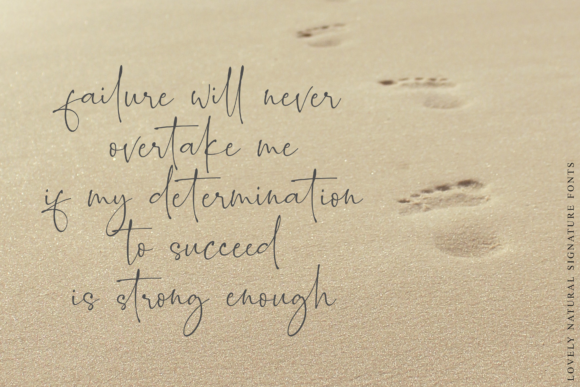 failure will never
overtake me
if my determination
to succeed
is strong enough
LOVELY NATURAL SIGNATURE FONTS